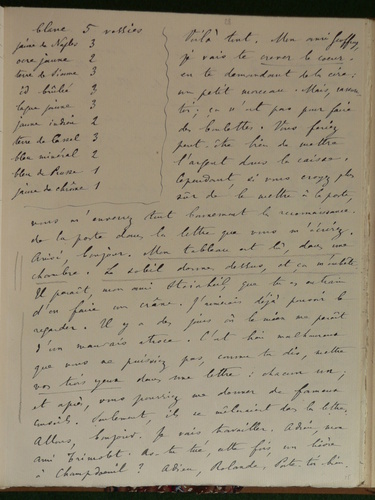 blanc 5 vessies
jaune de Naples 3
ocre jaune 2
terre de Sienne 3
id brûlée 3
laque jaune 3
jaune indien 2
terre de Cassel 3
bleu minéral 2
bleu de Prusse 1
jaune de chrome 1
Voilà tout. Mon ami Geoffroy,
je vais te crever le cœur
en te demandant de la cire;
un petit morceau. Mais, rassure
toi; ce n'est pas pour faire
des boulettes. Vous feriez
peut être bien de mettre
l'argent dans la caisse.
Cependant, si vous croyez plus
sûr de le mettre à la poste,
vous m'enverrez tout bonnement la reconnaissance
de la poste dans la lettre que vous m'écrirez.
Ainsi, bonjour. Mon tableau est là, dans une
chambre. Le soleil donne dessus, et ça m'embête.
Il paraît, mon ami Steinheil, que tu es en train
d'en faire un crâne. J'aimerais déjà pouvoir le
regarder. Il y a des jours où le mien me paraît
d'un mauvais atroce. C'est bien malheureux
que vous ne puissiez pas, comme tu dis, mettre
vos trois yeux dans une lettre; chacun un;
et après, vous pourriez me donner de fameux
conseils. Seulement, ils se mêleraient dans la lettre.
Allons, bonjour. Je vais travailler. Adieu, mon
ami Trimolet. As-tu tué, cette fois, un lièvre
à Champdeuil? Adieu, Rolande. Porte-toi bien.